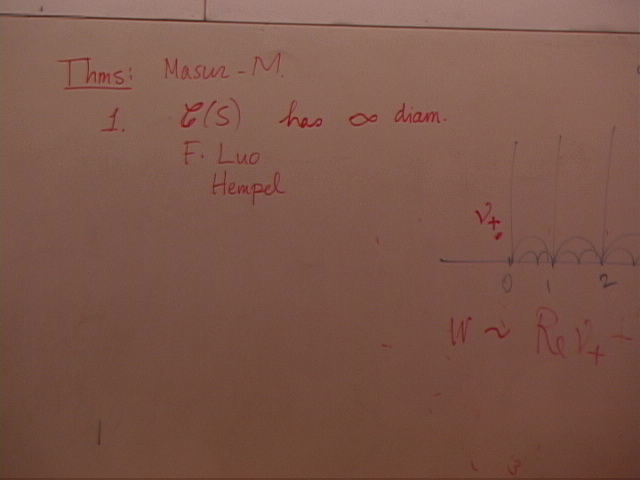 Thms: Masur - M.
1. 𝒞(S) has ∞ diam.
F. Luo
Hempel
ν₊
0 1 2
W ~ Re ν₊ -